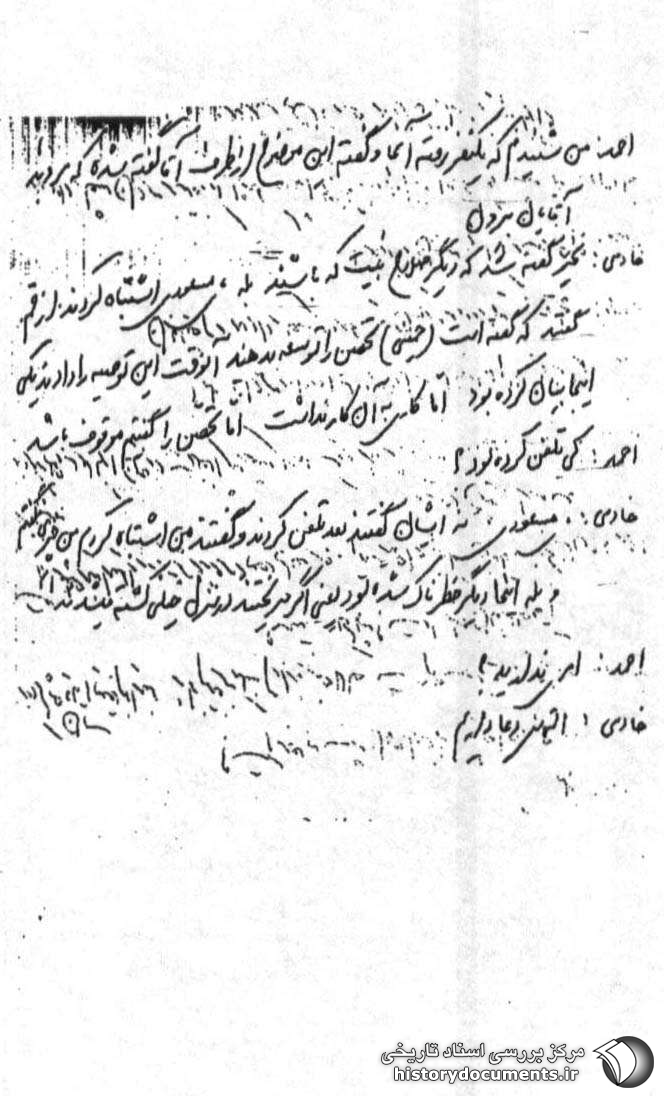 احمد: من شنیدم که یکنفر رفته آنجا و گفته این موضوع از طرف آقا گفته شده که بروند
آقایان منزل
خادمی: بخیر گفته شد که دیگر صلاح نیست که باشند بله، مسعودی اشتباه کردند از قم
گفتند که گفته است (خمینی) تحصن را توسعه بدهند آنوقت این توصیه را دادند یکی
اینجا بیان کرده بود اما کسی به آن کار نداشت اما تحصن را گفتیم موقوف باشد
احمد: کی تلفن کرده بود؟
خادمی: مسعودی به ایشان گفتند بعد تلفن کردند و گفتند من اشتباه کردم من
و بله اینجا دیگر خطرناک شده بود یعنی اگر میریختند در منزل خیلی کشته میشدند
احمد: امری ندارید؟
خادمی: التماس دعا داریم
مرکز بررسی اسناد تاریخی
historydocuments.ir